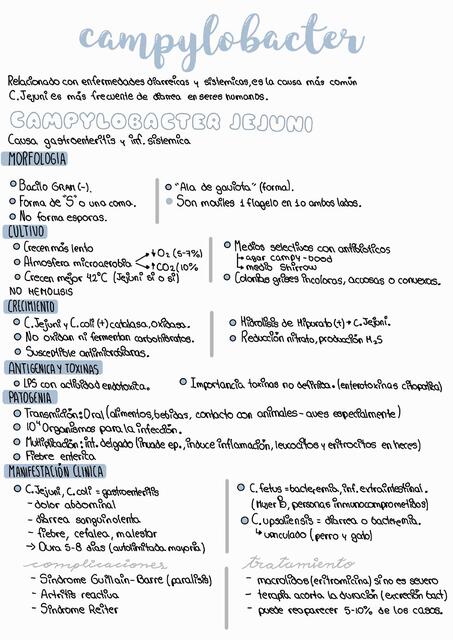 campylobacter
Relacionado con enfermedades diarreicas y sistemicas, es la causa más común
C.Jejuni es más frecuente de diarrea en seres humanos.
CAMPYLOBACTER JEJUNI
Causa gastroenteritis y inf. sistemica
MORFOLOGIA
Bacilo GRAM (-).
Forma de "S" o una coma.
No forma esporas.
"Ala de gaviota" (forma).
Son moviles 1 flagelo en 1 o ambos lados.
CULTIVO
Crecen más lento
Atmosfera microaerobia
↓O2 (5-7%)
↑CO2 (10%
Crecen mejor 42°C (Jejuni si o si)
NO HEMOLISIS
Medios selectivos con antibioticos
agar campy-
medio Skirrow
Colonias grises incoloras, acuosas o convexas.
CRECIMIENTO
C.Jejuni y C.coli (+) catalasa, oxidasa.
No oxidan ni fermentan carbohidratos.
Susceptible antimicrobianos.
Hidrolisis de Hipurato (+) → C.Jejuni.
Reducción nitrato, producción H2S
ANTIGENICA Y TOXINAS
LPS con actividad endotoxita.
Importancia toxinas no definita. (enterotoxinas citopatica)
PATOGENIA
Transmición: Oral (alimentos, bebidas, contacto con animales - aves especialmente)
10⁴ Organismos para la infección.
Multiplicación: int. delgado (invade ep., induce inflamación, leucocitos y eritrocitos en heces)
Fiebre enterica
MANIFESTACIÓN CLINICA
C.Jejuni, C.coli = gastroenteritis
- dolor abdominal
- diarrea sanguinolenta
- fiebre, cefalea, malestar
→ Dura 5-8 dias (autolimitada mayoria)
C.fetus = bacteremia, inf. extraintestinal.
(Muer, personas inmunocomprometidos)
C.upsaliensis = diarrea o bacteremia.
↳ vinculado (perro y gato)
complicaciones
- Sindrome Guillain-Barre (paralisis)
- Artritis reactiva
- Sindrome Reiter
tratamiento
- macrolidos (eritromicina) si no es severo
- terapia acorta la duración (excreción bact)
- puede reaparecer 5-10% de los casos.